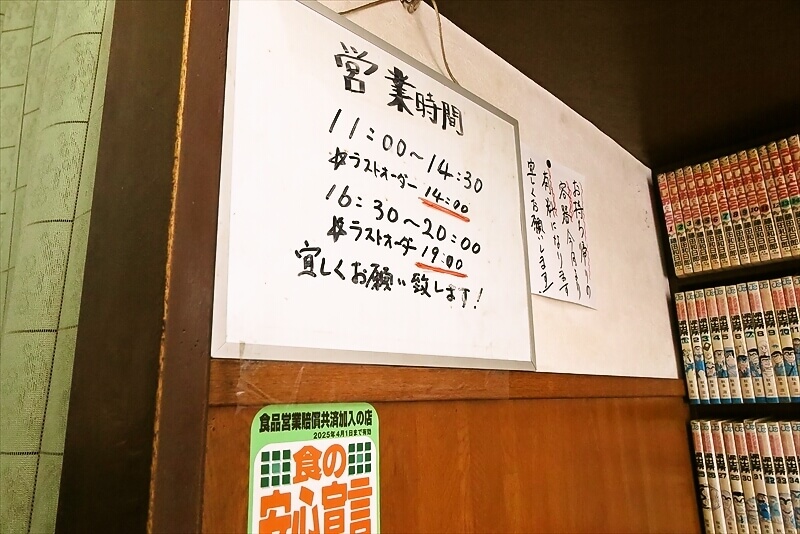 営業時間
11:00～14:30
※ラストオーダー 14:00
16:30～20:00
※ラストオーダー 19:00
宜しくお願い致します!
お持ち帰りの
容器今月より
有料になります
宜しくお願いします!
食品営業賠償共済加入の店
2025年4月1日まで有効
食の
安心宣言